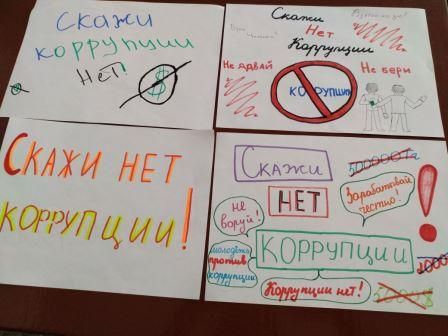 Скажи
коррупции
Нет!
$
Скажи
Нет
Коррупции
Не давай
Не бери
коррупция
Скажи нет
коррупции!
Скажи
нет
Зарабатывай
честно!
не
воруй!
Коррупции
молодежь
против
коррупции
Коррупции нет!